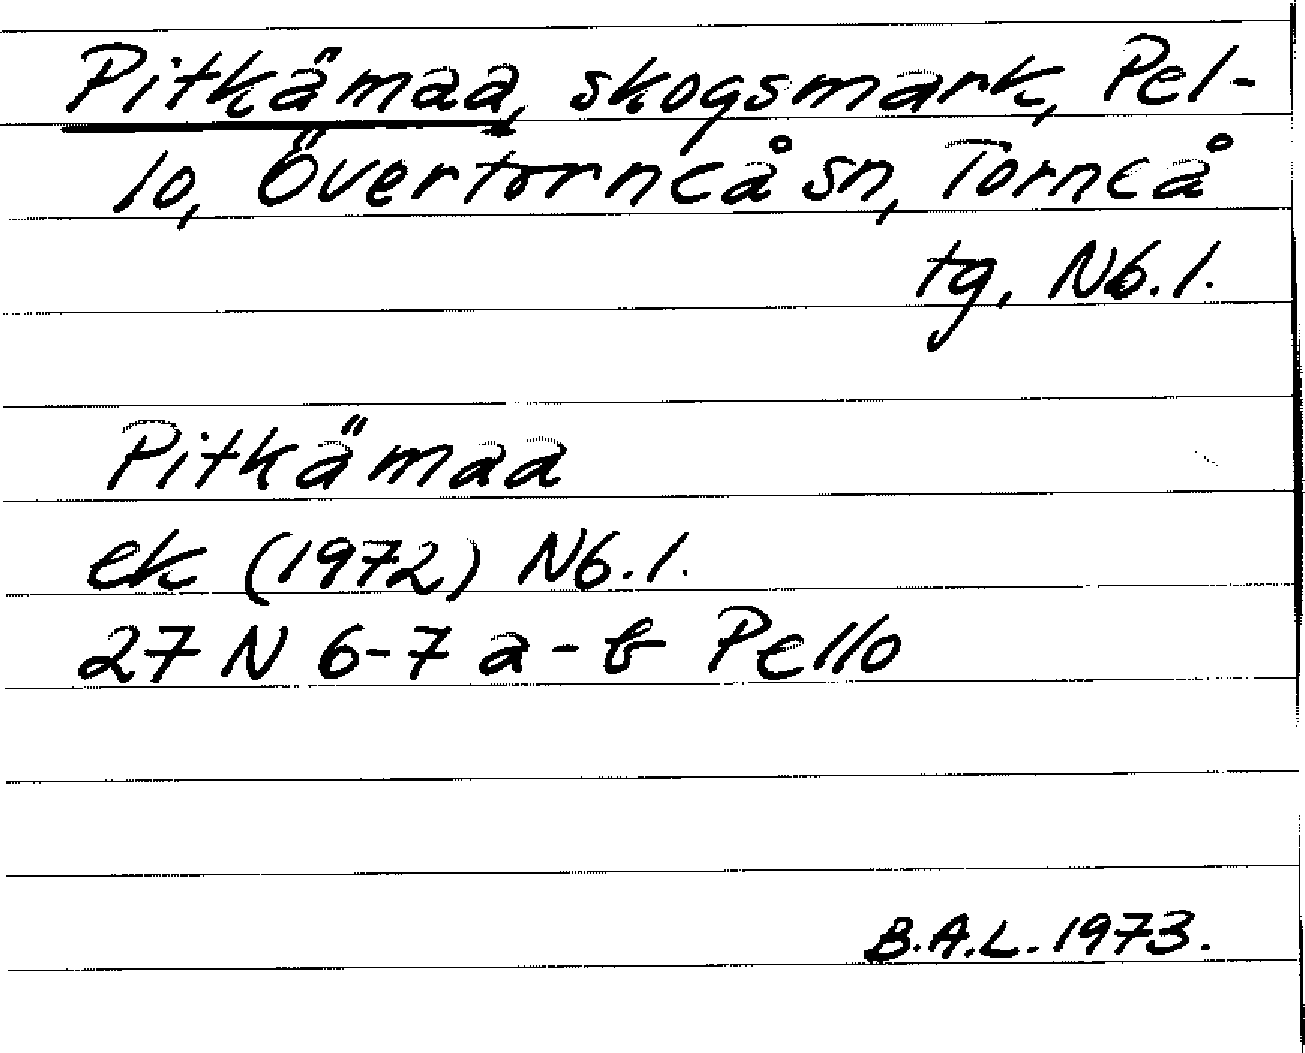 Pitkämaa, skogsmark, Pel-
lo, Övertorneå sn, Torneå
tg, Nb.l.
Pitkämaa
ek (1972) Nb.l.
27 N 6-7 a-b Pello
B.A.L. 1973.